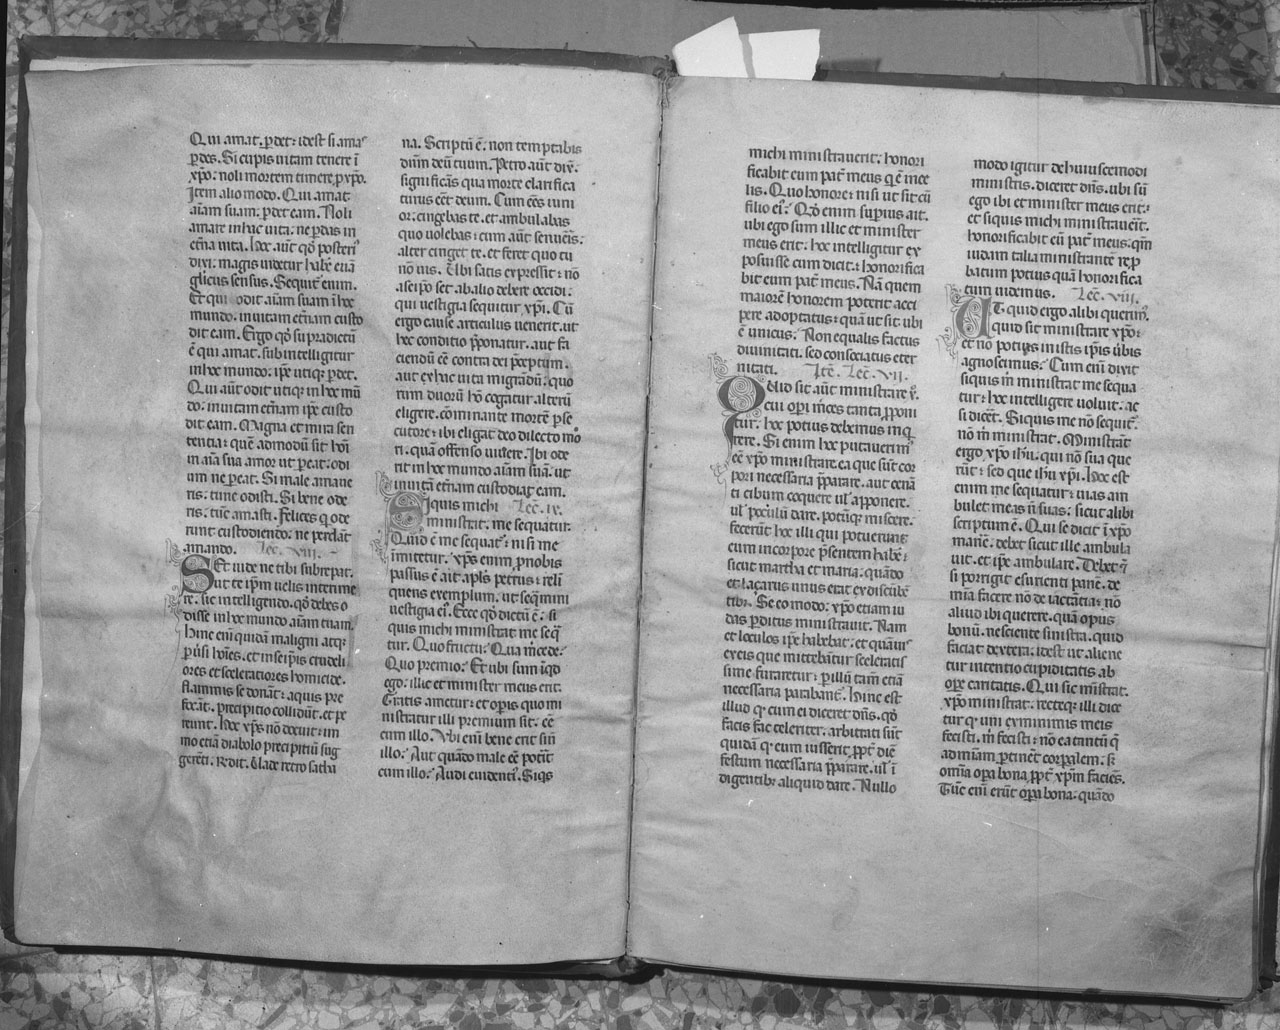 Qui amat. ꝑdet: idest si amaˢ
ꝑdes. Si cupis uitam tenere ī
xp̄o: noli mortem timere ꝑ xp̄o.
Item alio modo. Qui amat
aīam suam: ꝑdet eam. Noli
amare in hac uita: ne ꝑdas in
et̄na uita. Hoc aūt qd̄ posteriꝰ
dixi: magis uidetur hab̄e euā
glicus sensus. Sequit̄ enim.
Et qui odit aīam suam ī hoc
mundo: in uitam et̄nam custo
dit eam. Ergo qd̄ supradictū
ē qui amat. subintelligitur
in hoc mundo: ip̄e utiqꝫ ꝑdet.
Qui aūt odit utiqꝫ in hoc mū
do: in uitam et̄nam ip̄e custo
dit eam. Magna et mira sen
tentia: quē admodū sit hoī
in aīa sua amor ut ꝑeat: odi
um ne ꝑeat. Si male amaue
ris: tunc odisti. Si bene ode
ris: tūc amasti. Felices q̄ ode
runt custodiendo: ne ꝑdāt
amando. Lec̄. viii.
Set uide ne tibi subrepat.
ut te ip̄m uelis interime
re: sic intelligendo. qd̄ debes o
disse in hoc mundo aīam tuam.
Hinc eni quidā maligni atqꝫ
ꝑūsi hoīes. et in seip̄is crudeli
ores et sceleratiores homicide:
flammis se donāt: aquis pre
focāt. precipitio collidūt. et pe
reunt. Hoc xp̄s nō docuit: im
mo etiā diabolo precipitiū sug
gerēti. R̄dit. Uade retro satha
na. Scriptū ē. non temptabis
dn̄m deū tuum. Petro aūt dix̄.
significās qua morte clarifica
turus eēt deum. Cum eēs iuni
or: cingebas te. et ambulabas
quo uolebas: cum aūt senueīs:
alter cinget te. et feret quo tu
nō uis. Ubi satis expressit: nō
a seip̄o set ab alio debere occidi:
qui uestigia sequitur xp̄i. Cū
ergo cause articulus uenerit. ut
hec conditio ꝓponatur. aut fa
ciendū eē contra dei p̄ceptum.
aut ex hac uita migrādū. quo
rum duorū hō cogatur alterū
eligere. cōminante mortē ꝑse
cutore: ibi eligat deo dilecto mo
ri. quā offenso uiuere. Ibi ode
rit in hoc mundo aīam suā. ut
in uitā et̄nam custodiat eam.
Siquis michi Lec̄. ix.
ministrat. me sequatur.
Quid ē me sequat̄: nisi me
imitetur. xp̄s enim ꝓ nobis
passus ē ait apl̄s petrus: relī
quens exemplum. ut seq̄mini
uestigia eiꝰ. Ecce qd̄ dictū ē: si
quis michi ministrat me seq̄
tur. Quo fructu: Qua m̄cede:
Quo premio: Et ubi sum īqd
ego: illic et minister meus erit.
Gratis ametur: et oꝑis quo mi
nistratur illi premium sit: eē
cum illo. Ubi enī bene erit sin̄
illo: Aut quādo male eē poterit
cum illo: Audi euident̄i. Siqˢ
michi ministrauerit: honori
ficabit eum pat̄ meus q̄ ē in ce
lis. Quo honore: nisi ut sit cū
filio eiꝰ: Qd̄ enim supius ait.
ubi ego sum illic et minister
meus erit: hoc intelligitur ex
posuisse cum dicit: honorifica
bit eum pat̄ meus. Nā quem
maiorē honorem poterit acci
pere adoptatus: quā ut sit ubi
ē unicus: Non equalis factus
diuinitati. sed consociatus eter
nitati. Itē. Lec̄. vii.
Quid sit aūt ministrare x̄.
cui oꝑi m̄ces tanta ꝓponi
tur: hoc potius debemus inq̄
rere. Si enim hoc putauerimꝰ
eē xp̄o ministrare. ea que sūt cor
pori necessaria p̄parare. aut cenā
ti cibum coquere ul̓ apponere.
ul̓ poculū dare. potūqꝫ miscere:
fecerūt hoc illi qui potuerunt
eum in corpore p̄sentem habe̅:
sicut martha et maria: quādo
et laçarus unus erat ex discūbē
tibꝫ. Se eo modo: xp̄o etiam iu
das ꝑditus ministrauit. Nam
et loculos ip̄e habebat: et quāuis
ex eis que mittebāt̄ sceleratis
sime furaretur: ꝑ illū tam̄ etiā
necessaria parabant̄. Hinc est
illud q̄ cum ei diceret dn̄s. qd̄
facis fac celeriter: arbitrati sūt
quidā q̄ eum iusserit. ꝓpt̄ diē
festum necessaria p̄parare. ul̓ ī
digentibꝫ aliquid dare. Nullo
modo igitur de huiuscemodi
ministris. diceret dn̄s. ubi sū
ego ibi et minister meus erit:
et siquis michi ministrauerit.
honorificabit eū pat̄ meus: qm̄
iudam talia ministrante rep̄
batum potius quā honorifica
tum uidemus. Lec̄. viii.
Ut quid ergo alibi querimꝰ.
quid sit ministrare xp̄o:
et nō potius in istis ip̄is ūbis
agnoscimus: Cum enī dixit
siquis m̄ ministrat me sequa
tur: hoc intelligere uoluit: ac
si dicet̄. Siquis me nō sequit̄.
nō m̄ ministrat. Ministrāt
ergo xp̄o ih̄u: qui nō sua que
rūt: sed que ih̄u xp̄i. Hoc est
enim me sequatur: uias am
bulet meas n̄ suas: sicut alibi
scriptum ē. Qui se dicit ī xp̄o
manē. debet sicut ille ambula
uit. et ip̄e ambulare. Debet ⁊
si porrigit esurienti panē. de
mīa facere nō de iactātia: nō
aliud ibi querere. quā opus
bonū. nesciente sinistra. quid
faciat dextera: idest ut aliene
tur intentio cupiditatis ab
oꝑe caritatis. Qui sic mīstrat.
xp̄o ministrat. recteqꝫ illi dice
tur q̄ uni ex minimis meis
fecisti. m̄ fecisti: nō ea tantū q̄
ad mīam ꝑtinēt corꝑalem. s̄
om̄ia oꝑa bona ꝓpt̄ xp̄m facies.
Tūc enī erūt oꝑa bona: quādo